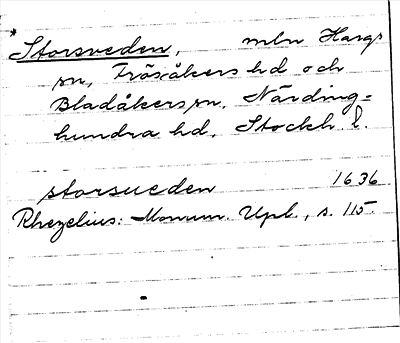 * Storsveden, mln Hargs
sn, Frösåkers hd och
Bladåkers sn, Närding=
hundra hd, Stockh. l.
storsueden 1636
Rhezelius: Monum. Upl., s. 115.